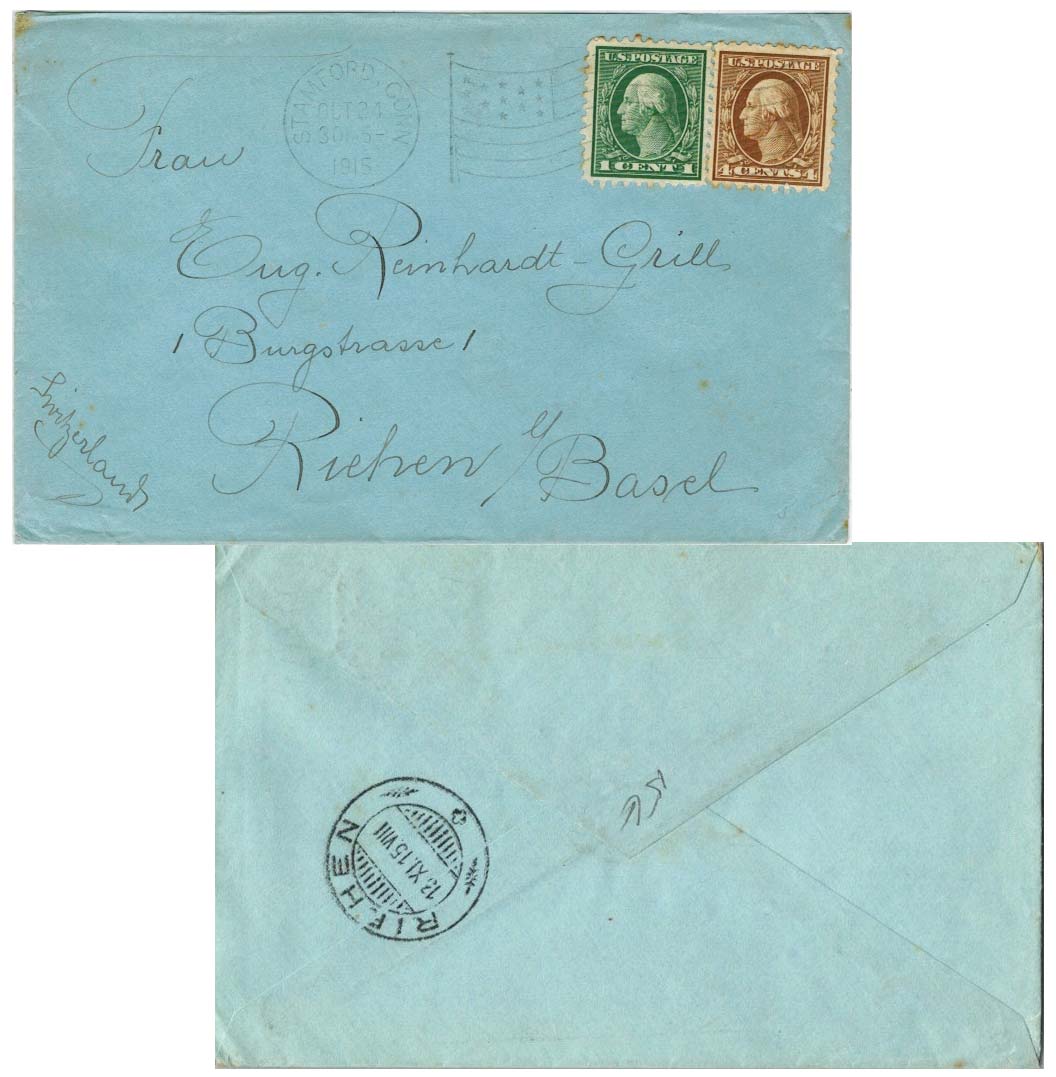 STAMFORD, CONN
OCT 24
1915
U.S. POSTAGE
1 CENT 1
U.S. POSTAGE
4 CENTS 4
Frau
Eug. Reinhardt-Grill
1 Burgstrasse 1
Riehen b/ Basel
Switzerland
RIEHEN
13.XI.15.VIII